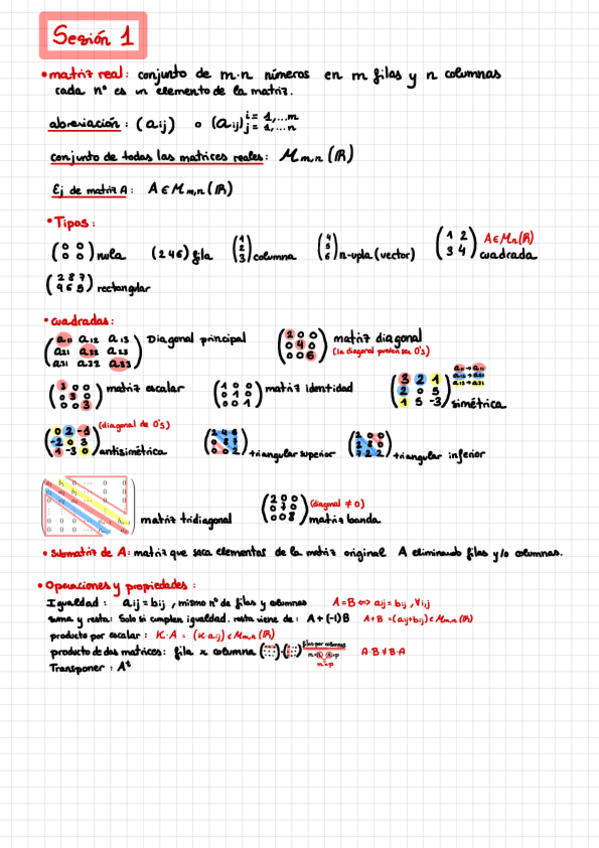 Sesión 1
• matriz real: conjunto de m·n números en m filas y n columnas
cada nº es un elemento de la matriz.
abreviación: (aij) o (aij) i = 1,...m j = 1,...n
conjunto de todas las matrices reales: Mm,n (ℝ)
Ej de matriz A: A ∈ Mm,n (ℝ)
• Tipos:
(0 0 / 0 0) nula (2 4 6) fila (1 / 2 / 3) columna (4 / 5 / 6) n-upla (vector) (1 2 / 3 4) cuadrada A∈Mn(ℝ)
(2 8 7 / 9 6 5) rectangular
• cuadradas:
(a11 a12 a13 / a21 a22 a23 / a31 a32 a33) Diagonal principal (2 0 0 / 0 4 0 / 0 0 6) matriz diagonal
(la diagonal pueden ser 0's)
(3 0 0 / 0 3 0 / 0 0 3) matriz escalar (1 0 0 / 0 1 0 / 0 0 1) matriz identidad (3 2 1 / 2 0 5 / 1 5 -3) simétrica
(0 2 -1 / -2 0 3 / 1 -3 0) antisimétrica (diagonal de 0's) (2 4 6 / 0 8 7 / 0 0 2) triangular superior (2 0 0 / 2 8 0 / 7 2 2) triangular inferior
matriz tridiagonal (2 0 0 / 0 7 0 / 0 0 8) (diagonal ≠ 0) matriz banda
• Submatriz de A: matriz que saca elementos de la matriz original A eliminando filas y/o columnas.
• Operaciones y propiedades:
Igualdad: aij = bij , mismo nº de filas y columnas A=B ⇔ aij = bij , ∀i,j
suma y resta: Solo si cumplen igualdad. resta viene de: A + (-1)B A+B = (aij+bij) ∈ Mm,n (ℝ)
producto por escalar: K·A = (K aij) ∈ Mm,n (ℝ)
producto de dos matrices: fila x columna filas por columnas A·B ≠ B·A
Transponer: Aᵗ